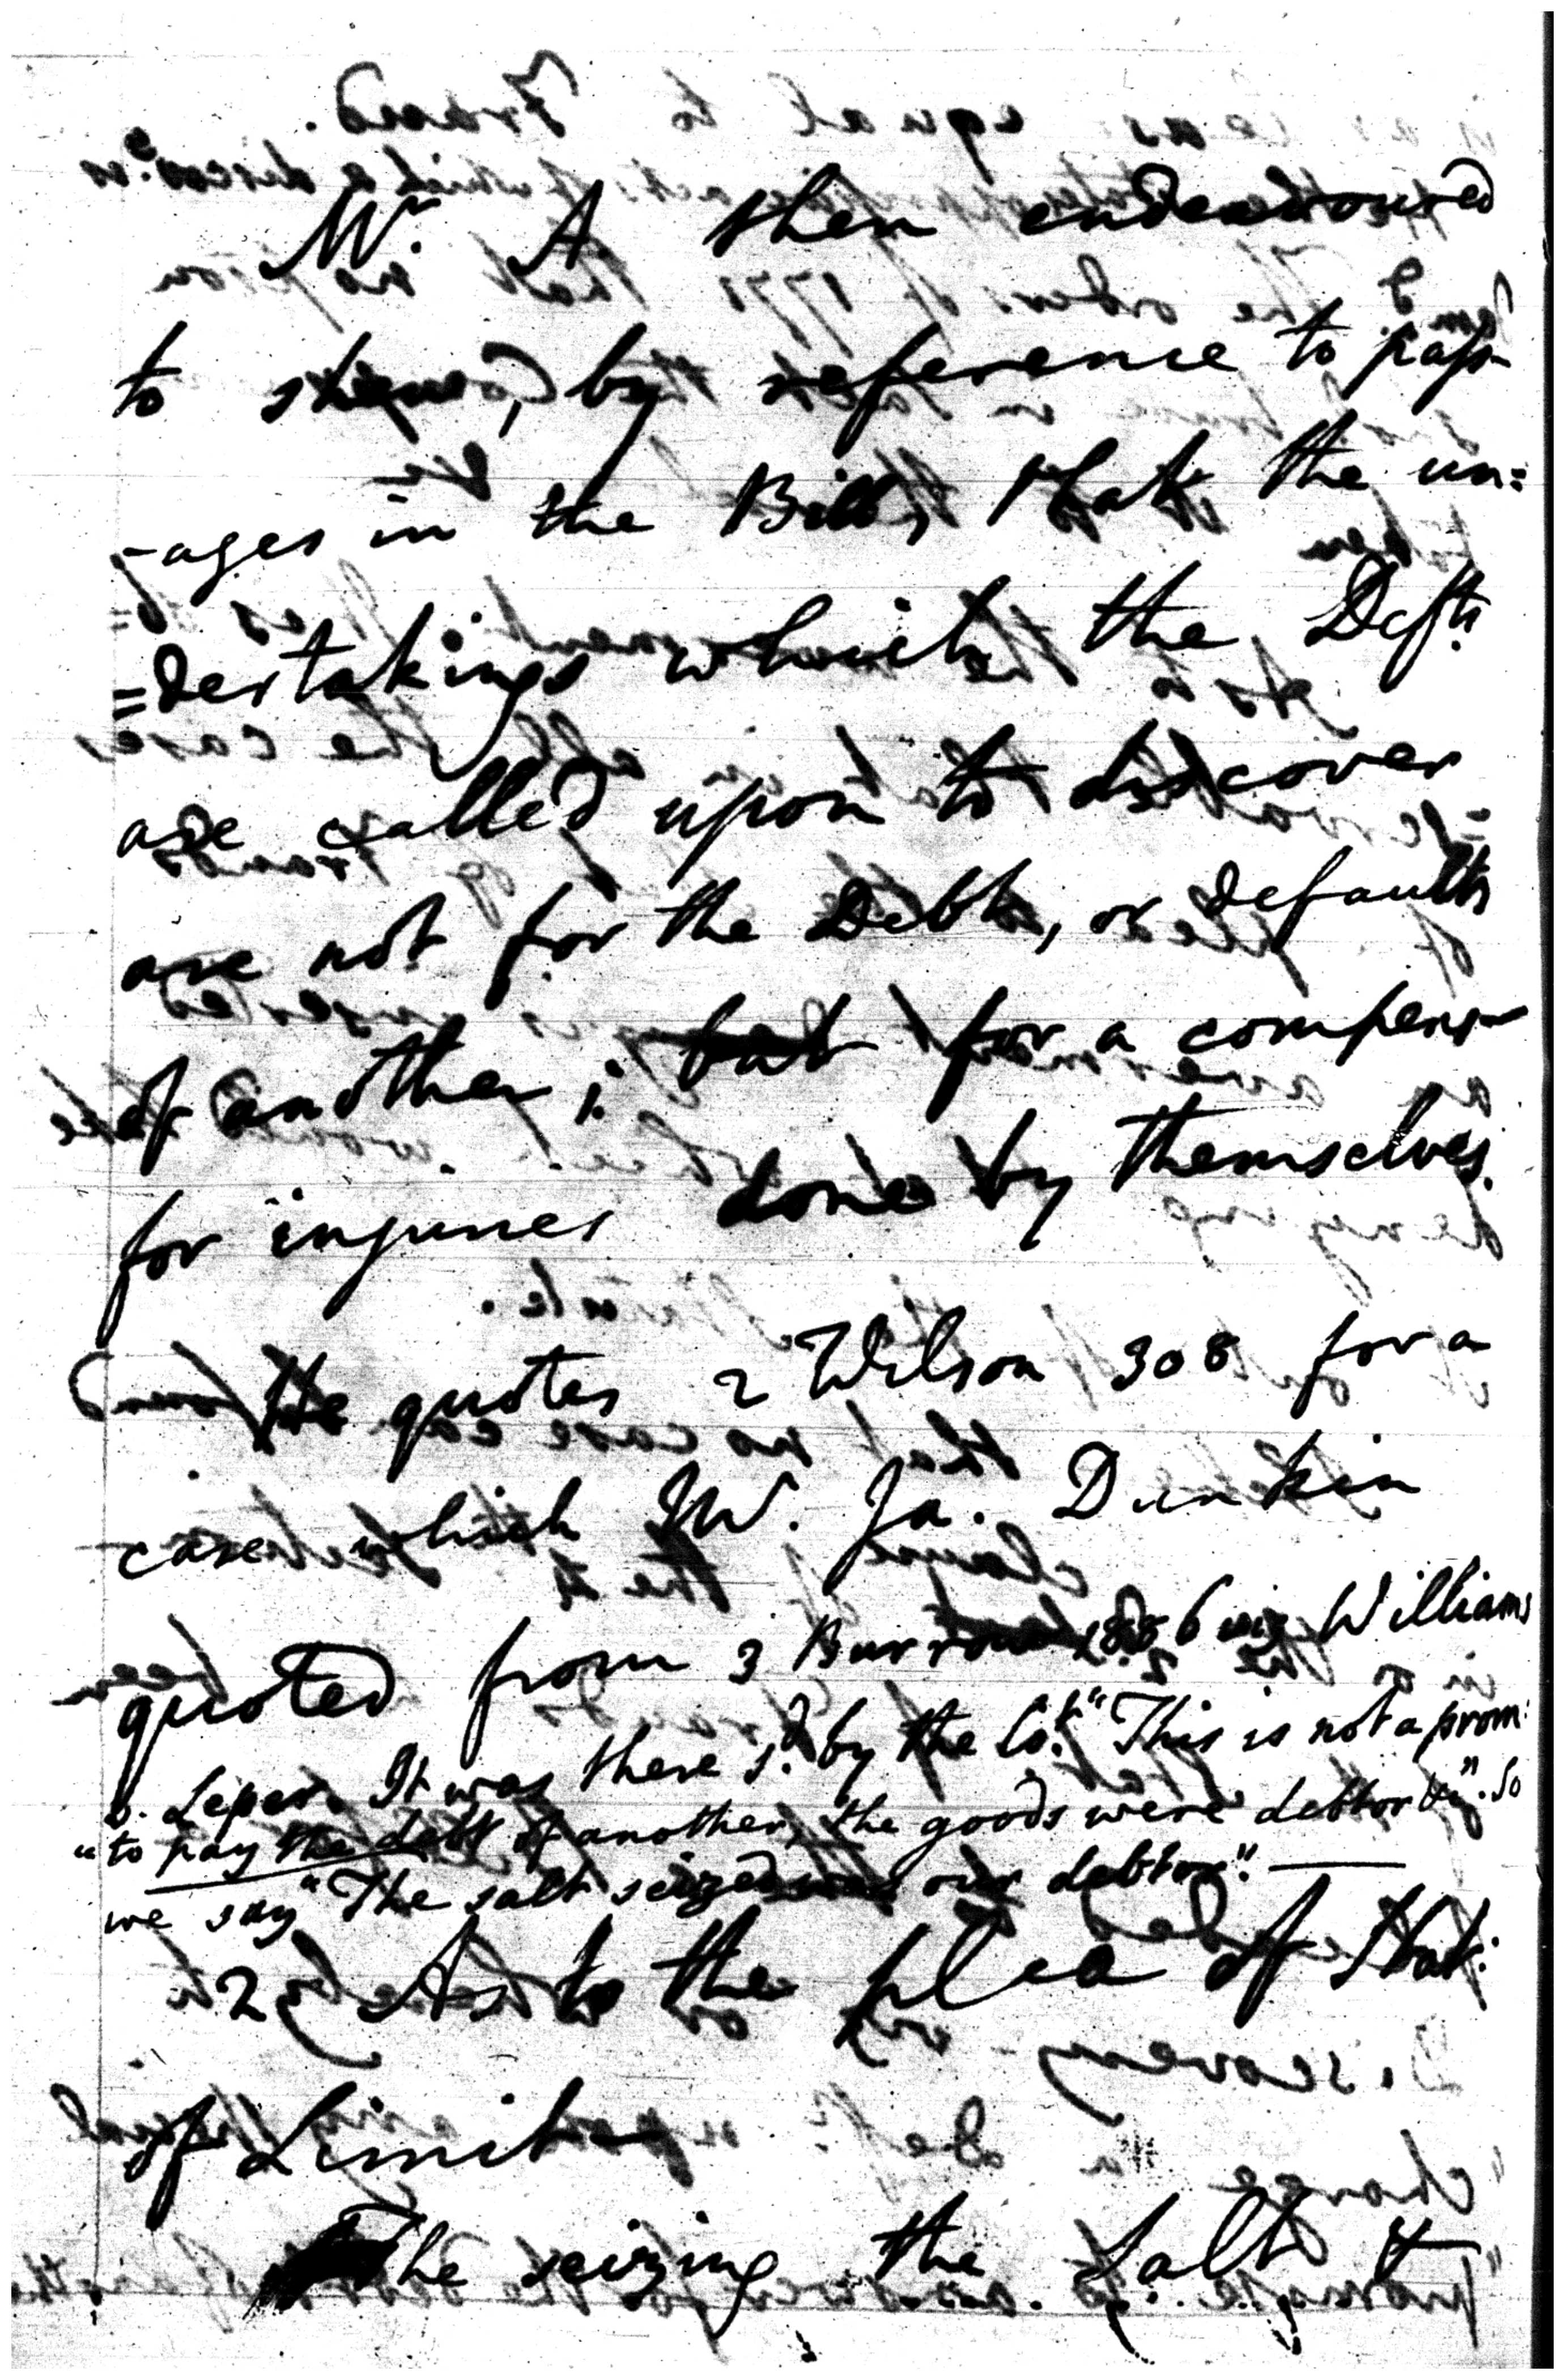 Mr. A then endeavoured
to shew, by reference to pass-
-ages in the Bill, that the un=
=dertakings which the Defts.
are called upon to discover
are not for the Debts, or defaults
of another; but for a compens-
for injuries done by themselves.
He quotes 2 Wilson 308 for a
case which Mr. Ja. Dunkin
quoted from 3 Burrow 1886 viz Williams
v. Leper. It was there sd. by the Ct. "This is not a prom:
"to pay the debt of another, the goods were debtor &". So
we say "The salt seized was our debtor". —
2 As to the plea of Stat:
of Limits
The seizing the Salt &